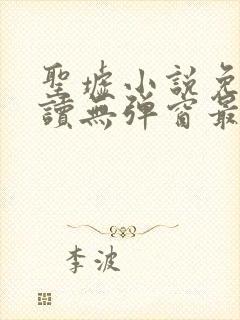 聖墟小說免
讀無彈窗最
李波